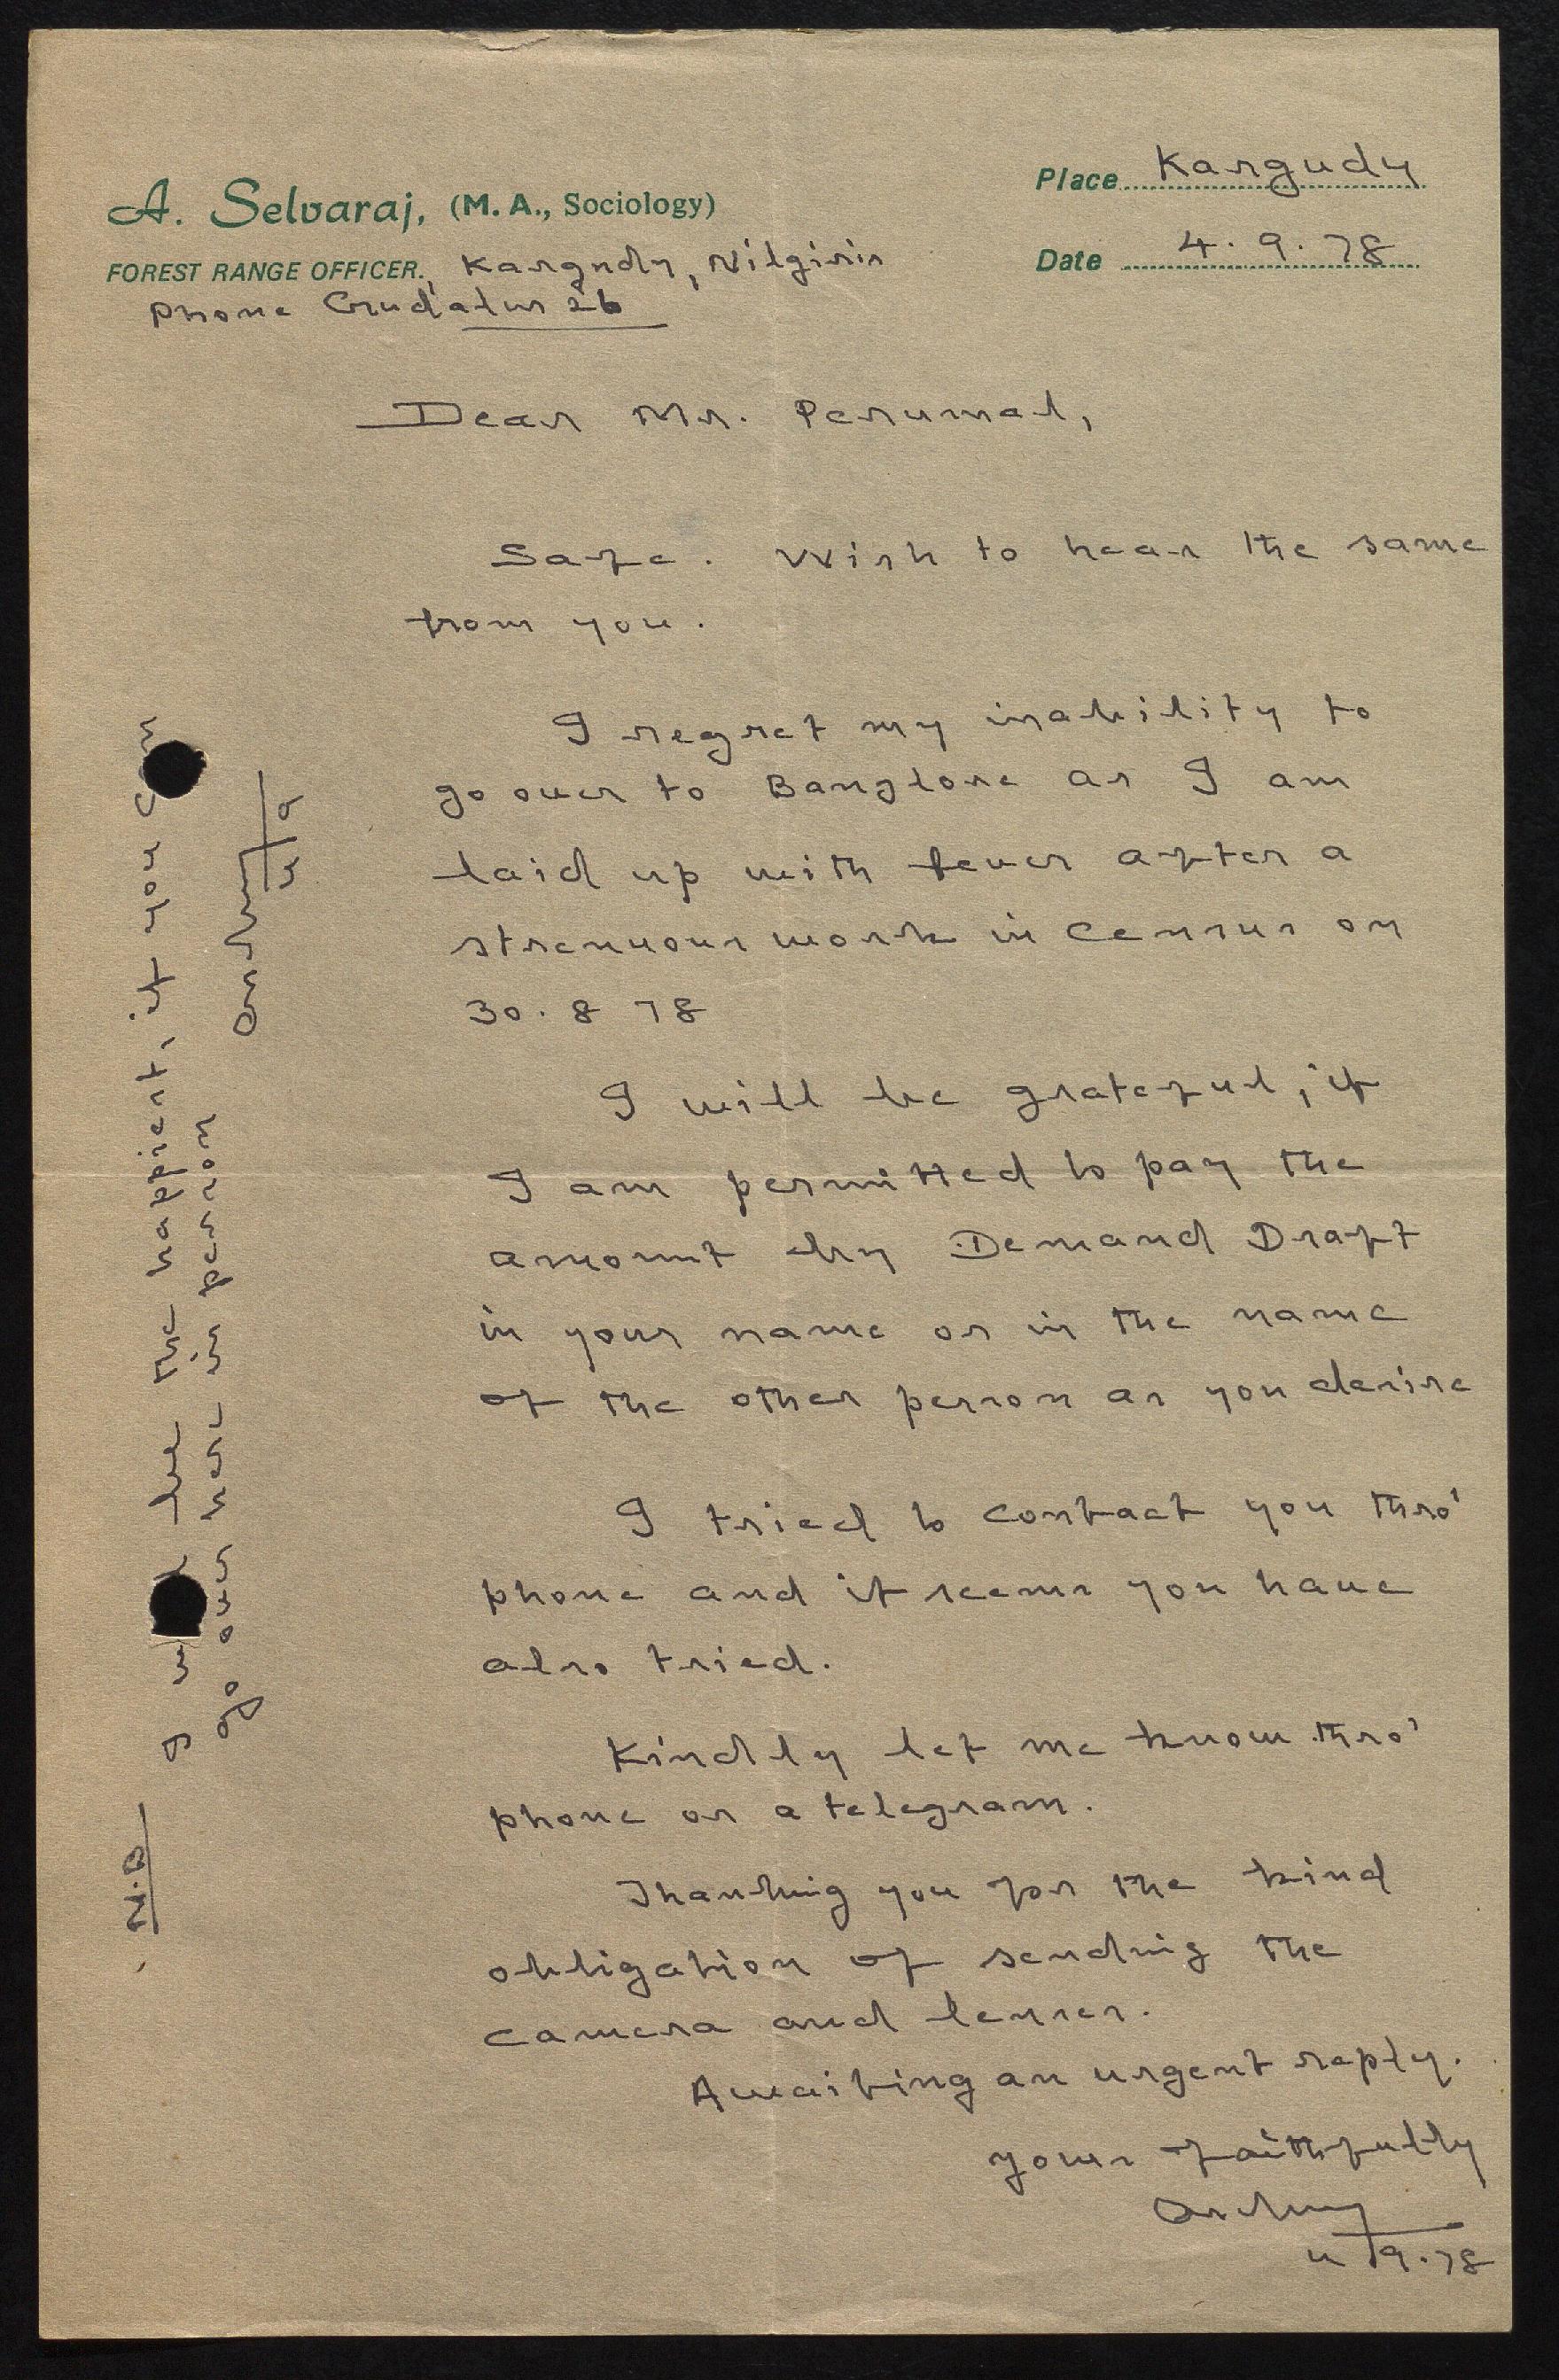 A. Selvaraj, (M. A., Sociology)
FOREST RANGE OFFICER, Kargudy, Nilgiris
Phone Gudalur 26
Place Kargudy
Date 4.9.78
Dear Mr. Perumal,
Safe. Wish to hear the same
from you.
I regret my inability to
go over to Banglore as I am
laid up with fever after a
strenuous work in Census on
30.8 78
I will be grateful, if
I am permitted to pay the
amount by Demand Draft
in your name or in the name
of the other person as you desire
I tried to contact you thro'
phone and it seems you have
also tried.
Kindly let me know thro'
phone or a telegram.
Thanking you for the kind
obligation of sending the
camera and lenses.
Awaiting an urgent reply.
Yours faithfully
4/9.78
N.B
I will be the happiest, if you can
go over here in person
4/9